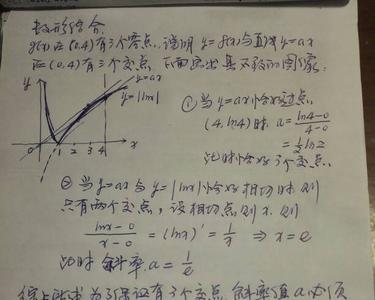 数形结合
g(x)在(0,4)有三个零点,说明 y=f(x)与直线 y=ax
在(0,4)有三个交点,下面画出其大致的图像:
y
y=ax
y=|lnx|
0 1 2 3 4 x
① 当 y=ax 恰好过点
(4,ln4)时 a=\frac{ln4-0}{4-0}
=\frac{1}{2}ln2
此时恰好3个交点.
② 当 y=ax 与 y=|lnx|恰好相切时 则
只有两个交点, 设相切点 则
\frac{lnx-0}{x-0}=(lnx)'=\frac{1}{x} ⇒ x=e
此时 斜率 a=\frac{1}{e}
综上所述 为了保证有三个交点 斜率值 a 必须